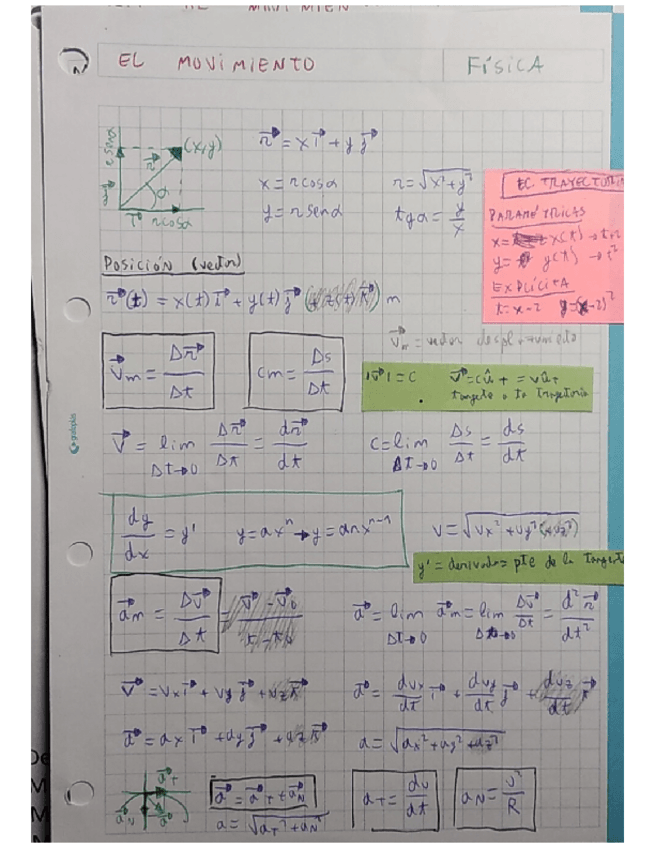 EL MOVIMIENTO
FÍSICA
r sen α
(x,y)
r⃗
α
j⃗
i⃗ r cos α
r⃗ = x i⃗ + y j⃗
x = r cos α
r = √x² + y²
y = r sen α
tg α = y/x
EC. TRAYECTORIA
PARAMÉTRICAS
x = x(t) → t+2
y = y(t) → t²
EXPLÍCITA
t = x-2 y = (x-2)²
Posición (vector)
r⃗(t) = x(t) i⃗ + y(t) j⃗ (+ z(t) k⃗) m
v⃗m = vector desplazamiento
v⃗m = Δr⃗/Δt
cm = Δs/Δt
|v⃗| = c v⃗ = c û t = v û t
tangente a la trayectoria
v⃗ = lim Δt→0 Δr⃗/Δt = dr⃗/dt
c = lim Δt→0 Δs/Δt = ds/dt
grafoplás
dy/dx = y' y = axⁿ → y = anxⁿ⁻¹
v = √vx² + vy² (+vz²)
y' = derivada = pte de la tangente
a⃗m = Δv⃗/Δt = v⃗ - v⃗0 / t - t0
a⃗ = lim Δt→0 a⃗m = lim Δt→0 Δv⃗/Δt = d²r⃗/dt²
v⃗ = vx i⃗ + vy j⃗ + vz k⃗
a⃗ = dvx/dt i⃗ + dvy/dt j⃗ + dvz/dt k⃗
a⃗ = ax i⃗ + ay j⃗ + az k⃗
a = √ax² + ay² + az²
a⃗T
a⃗N
a⃗
a⃗ = a⃗T + a⃗N
a = √aT² + aN²
aT = dv/dt
aN = v²/R